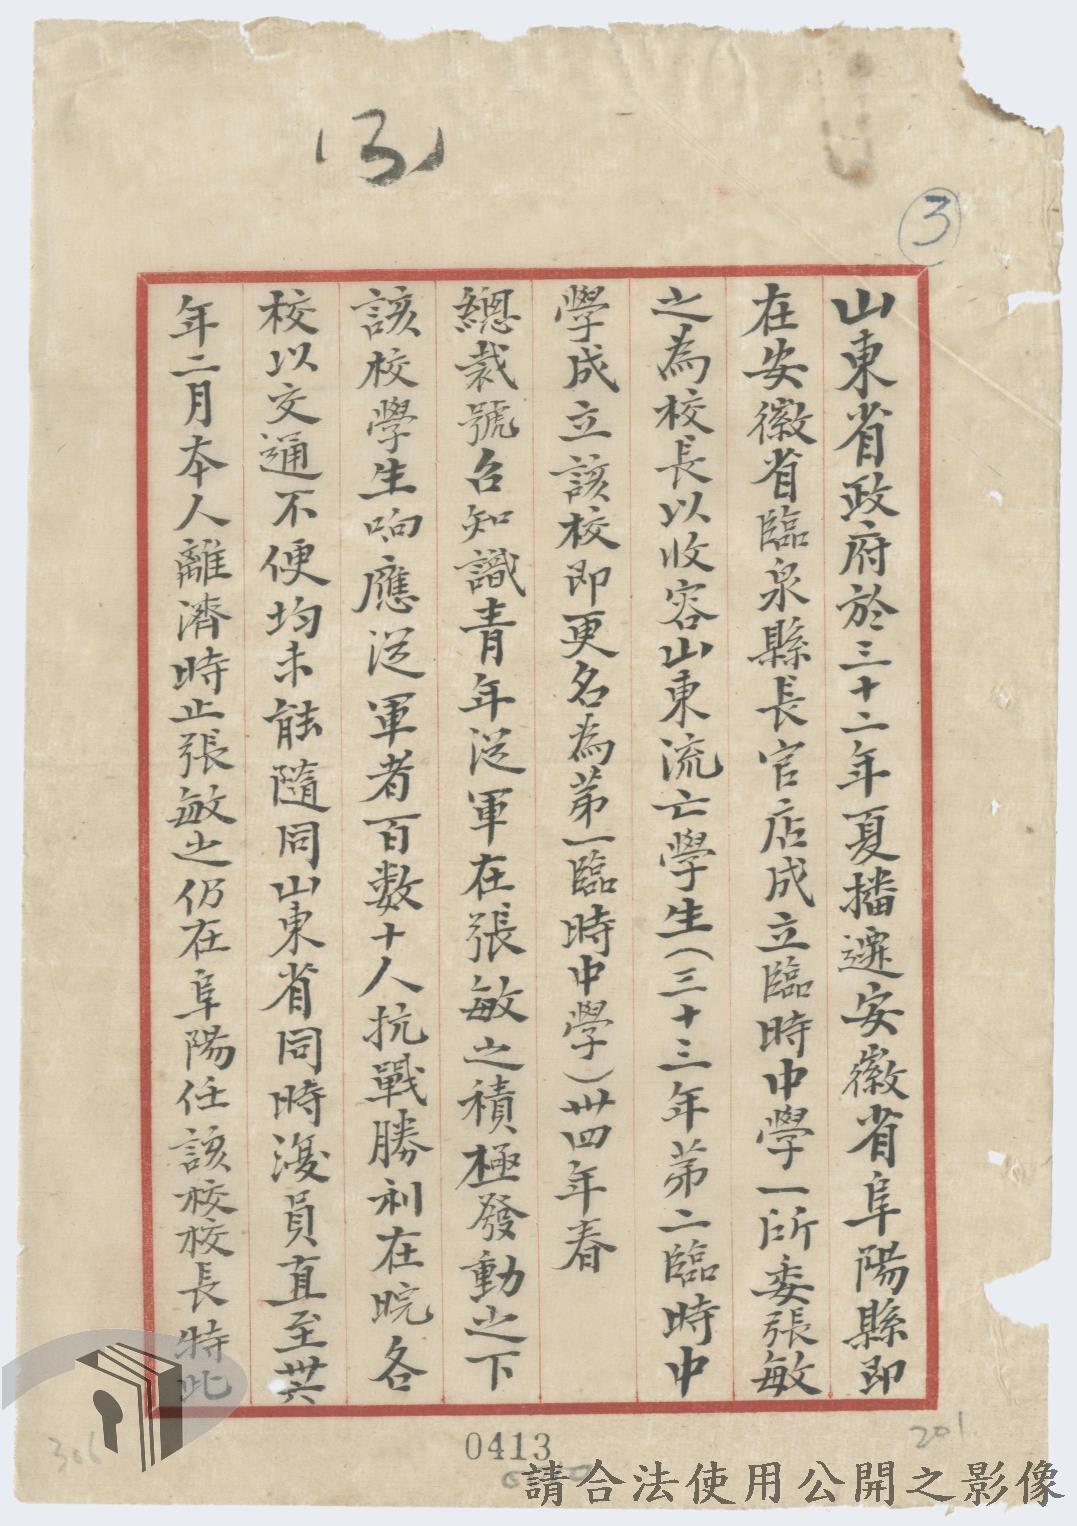 (3)
3
山東省政府於三十二年夏播遷安徽省阜陽縣即
在安徽省臨泉縣長官店成立臨時中學一所委張敏
之為校長以收容山東流亡學生(三十三年第二臨時中
學成立該校即更名為第一臨時中學)卅四年春
總裁號召知識青年從軍在張敏之積極發動之下
該校學生响應從軍者百数十人抗戰勝利在皖各
校以交通不便均未能隨同山東省同時復員直至卅六
年二月本人離濟時止張敏之仍在阜陽任該校校長特此
306
0413
201
請合法使用公開之影像